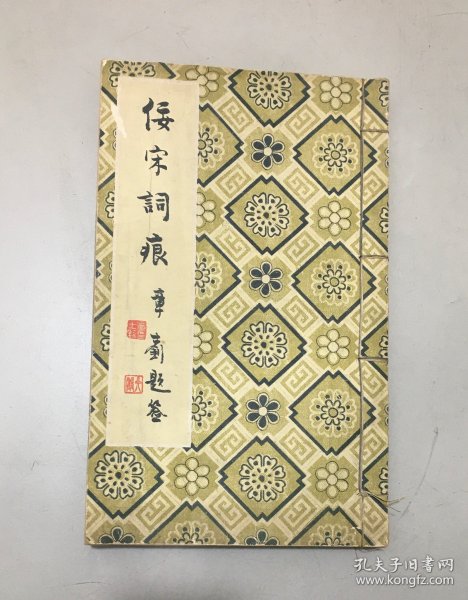 佞宋詞痕
章劼題簽
孔夫子旧书网
www.kongfz.com